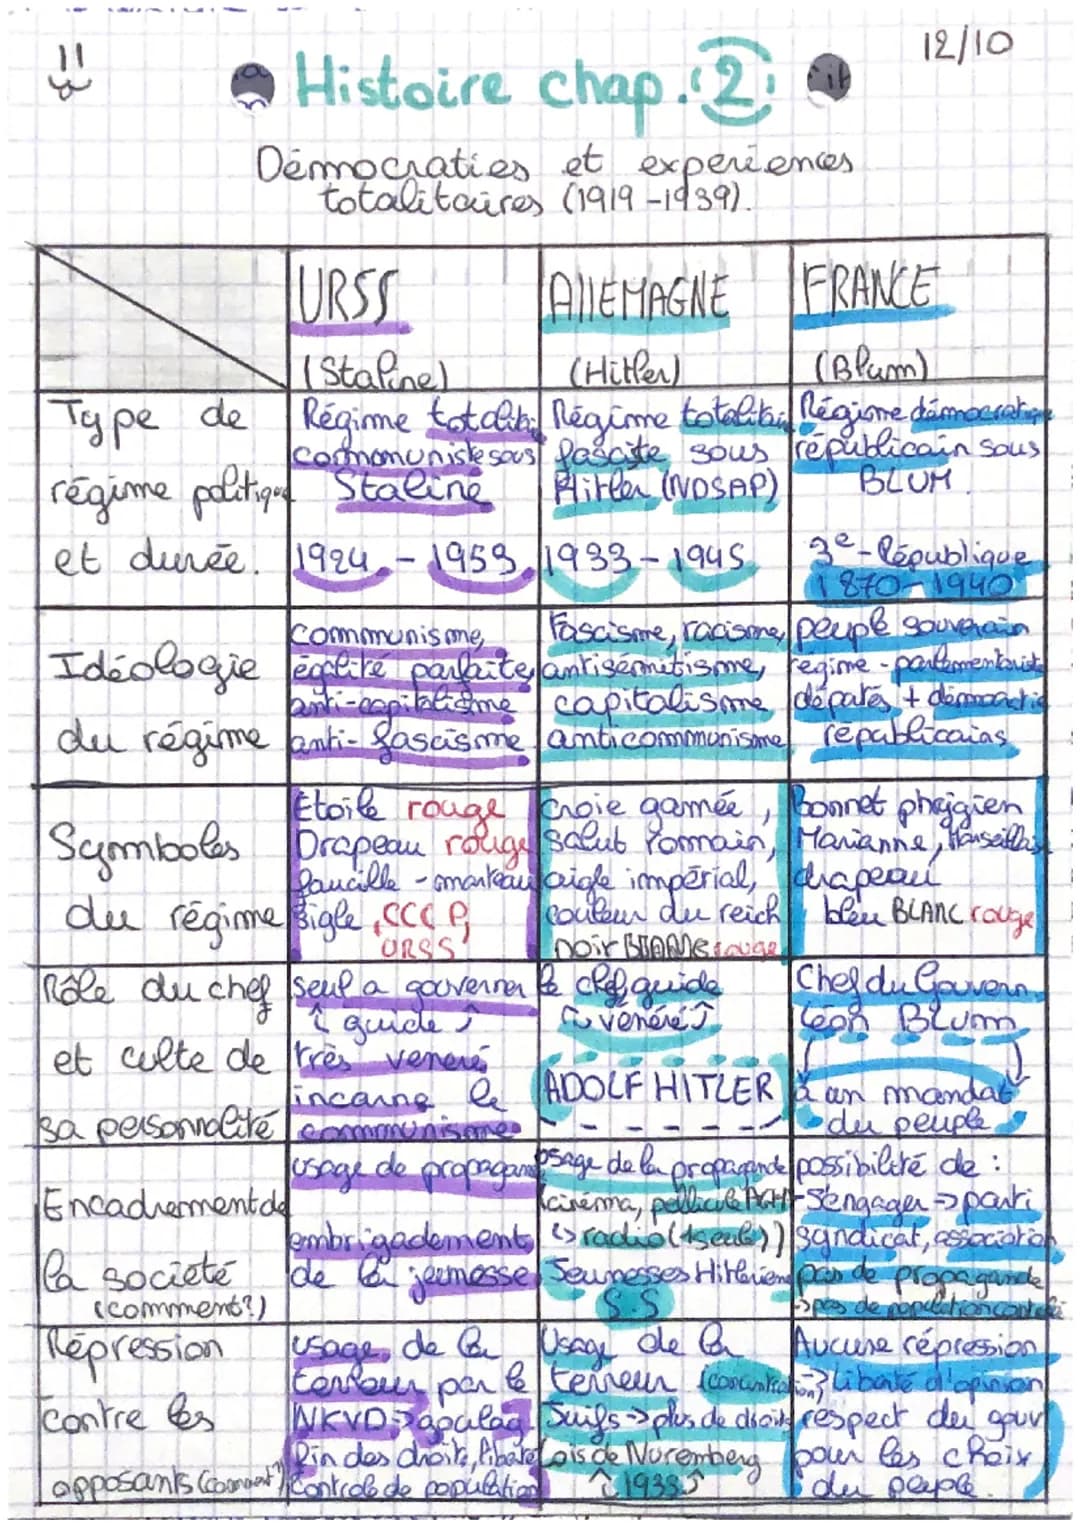 12/10
Histoire chap. 2
Démocraties et expériences
totalitaires (1919-1939).
URSS
(Staline)
AllEMAGNE
(Hitler)
FRANCE
(Blum)
Type de
régime politique
et durée.
Régime totalit
communiste sous
Staline
1924 - 1953
Régime totalitai
fasciste sous
Hitler (NDSAP)
1933 - 1945
Régime démocratique
républicain sous
BLUM.
3e - République
1870 - 1940
Idéologie
du régime
communisme,
égalité parfaite,
anti-capitalisme
anti-fascisme
Fascisme, racisme,
antisémitisme,
capitalisme
anticommunisme
peuple souverain
régime - parlementariste
députés + démocratie
républicains
Symboles
du régime
Etoile rouge
Drapeau rouge
faucille - marteau
sigle, CCCP,
URSS
croie gamée,
salut romain,
aigle impérial,
couleur du reich
noir BLANC rouge
Bonnet phrygien
Marianne, Marseillaise
drapeau
bleu BLANC rouge
Rôle du chef
et culte de
sa personnalité
seul a gouverner
guide
très veneré
incarne le
communisme
le chef, guide
vénéré
ADOLF HITLER
Chef du Gouvern.
Léon Blum
à un mandat
du peuple
Encadrement de
la société
(comment?)
usage de propagande
embrigadement
de la jeunesse
usage de la propagande
(cinéma, pellicule AGFA
↳ radio (1 seule))
Jeunesses Hitlerienne
S.S
possibilité de :
- S'engager → parti
syndicat, association
pas de propagande
→ pas de population contrôlé
Répression
contre les
opposants (comment?)
usage de la
terreur par le
NKVD → goulag
fin des droits, liberté
controle de population
Usage de la
terreur (concentration)
Juifs → plus de droits
Lois de Nuremberg
↑ 1933
Aucune répression
→ liberté d'opinion
respect du gouv
pour les choix
du peuple.